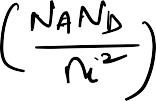 (NAND/ni²)